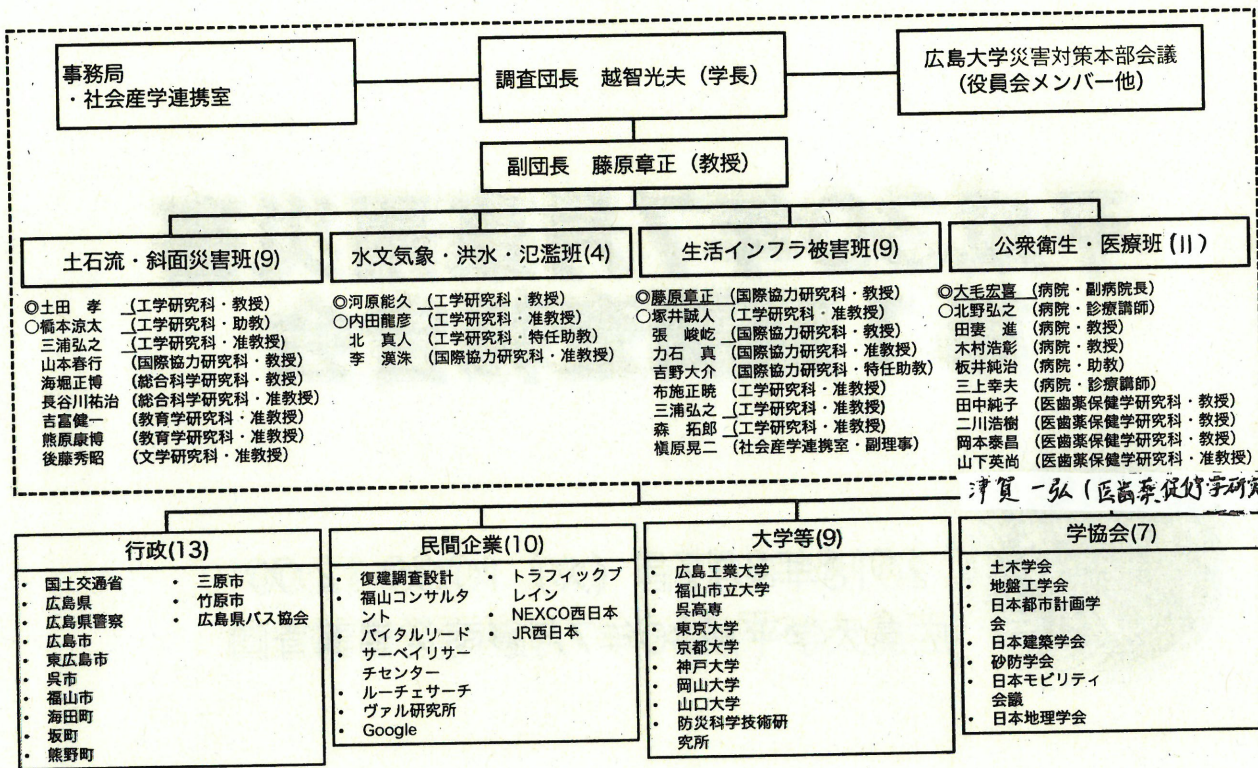 事務局
・社会産学連携室
調査団長 越智光夫（学長）
広島大学災害対策本部会議
（役員会メンバー他）
副団長 藤原章正（教授）
土石流・斜面災害班(9)
◎土田 孝 （工学研究科・教授）
○橋本涼太 （工学研究科・助教）
三浦弘之 （工学研究科・准教授）
山本春行 （国際協力研究科・教授）
海堀正博 （総合科学研究科・教授）
長谷川祐治 （総合科学研究科・准教授）
吉富健一 （教育学研究科・准教授）
熊原康博 （教育学研究科・准教授）
後藤秀昭 （文学研究科・准教授）
水文気象・洪水・氾濫班(4)
◎河原能久 （工学研究科・教授）
○内田龍彦 （工学研究科・准教授）
北 真人 （工学研究科・特任助教）
李 漢洙 （国際協力研究科・准教授）
生活インフラ被害班(9)
◎藤原章正 （国際協力研究科・教授）
○塚井誠人 （工学研究科・准教授）
張 峻屹 （国際協力研究科・教授）
力石 真 （国際協力研究科・准教授）
吉野大介 （国際協力研究科・特任助教）
布施正暁 （工学研究科・准教授）
三浦弘之 （工学研究科・准教授）
森 拓郎 （工学研究科・准教授）
槇原晃二 （社会産学連携室・副理事）
公衆衛生・医療班(11)
◎大毛宏喜 （病院・副病院長）
○北野弘之 （病院・診療講師）
田妻 進 （病院・教授）
木村浩彰 （病院・教授）
板井純治 （病院・助教）
三上幸夫 （病院・診療講師）
田中純子 （医歯薬保健学研究科・教授）
二川浩樹 （医歯薬保健学研究科・教授）
岡本泰昌 （医歯薬保健学研究科・教授）
山下英尚 （医歯薬保健学研究科・准教授）
津賀 一弘（医歯薬保健学研究
行政(13)
・ 国土交通省
・ 広島県
・ 広島県警察
・ 広島市
・ 東広島市
・ 呉市
・ 福山市
・ 海田町
・ 坂町
・ 熊野町
・ 三原市
・ 竹原市
・ 広島県バス協会
民間企業(10)
・ 復建調査設計
・ 福山コンサルタ
ント
・ バイタルリード
・ サーベイリサー
チセンター
・ ルーチェサーチ
・ ヴァル研究所
・ Google
・ トラフィックブ
レイン
・ NEXCO西日本
・ JR西日本
大学等(9)
・ 広島工業大学
・ 福山市立大学
・ 呉高専
・ 東京大学
・ 京都大学
・ 神戸大学
・ 岡山大学
・ 山口大学
・ 防災科学技術研
究所
学協会(7)
・ 土木学会
・ 地盤工学会
・ 日本都市計画学
会
・ 日本建築学会
・ 砂防学会
・ 日本モビリティ
会議
・ 日本地理学会